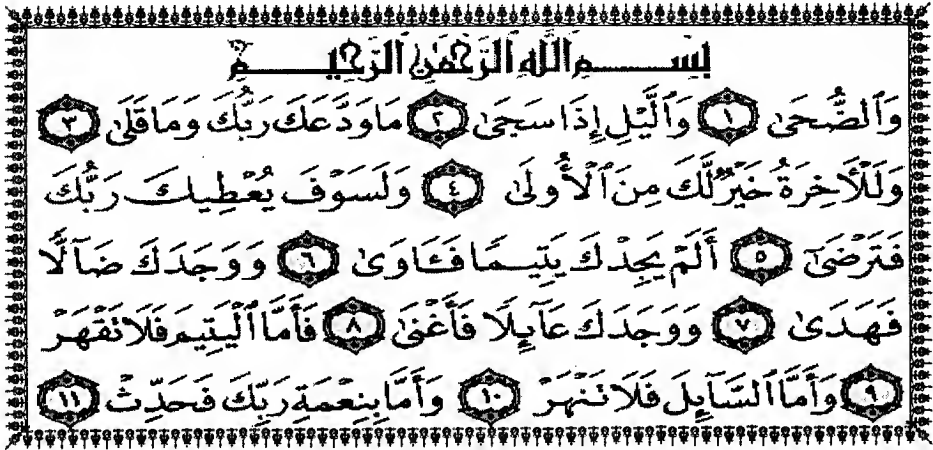 بِسْمِ ٱللَّهِ ٱلرَّحْمَٰنِ ٱلرَّحِيمِ
وَٱلضُّحَىٰ ١ وَٱلَّيْلِ إِذَا سَجَىٰ ٢ مَا وَدَّعَكَ رَبُّكَ وَمَا قَلَىٰ ٣
وَلَلْـَٔاخِرَةُ خَيْرٌ لَّكَ مِنَ ٱلْأُولَىٰ ٤ وَلَسَوْفَ يُعْطِيكَ رَبُّكَ
فَتَرْضَىٰٓ ٥ أَلَمْ يَجِدْكَ يَتِيمًا فَـَٔاوَىٰ ٦ وَوَجَدَكَ ضَآلًّا
فَهَدَىٰ ٧ وَوَجَدَكَ عَآئِلًا فَأَغْنَىٰ ٨ فَأَمَّا ٱلْيَتِيمَ فَلَا تَقْهَرْ
٩ وَأَمَّا ٱلسَّآئِلَ فَلَا تَنْهَرْ ١٠ وَأَمَّا بِنِعْمَةِ رَبِّكَ فَحَدِّثْ ١١